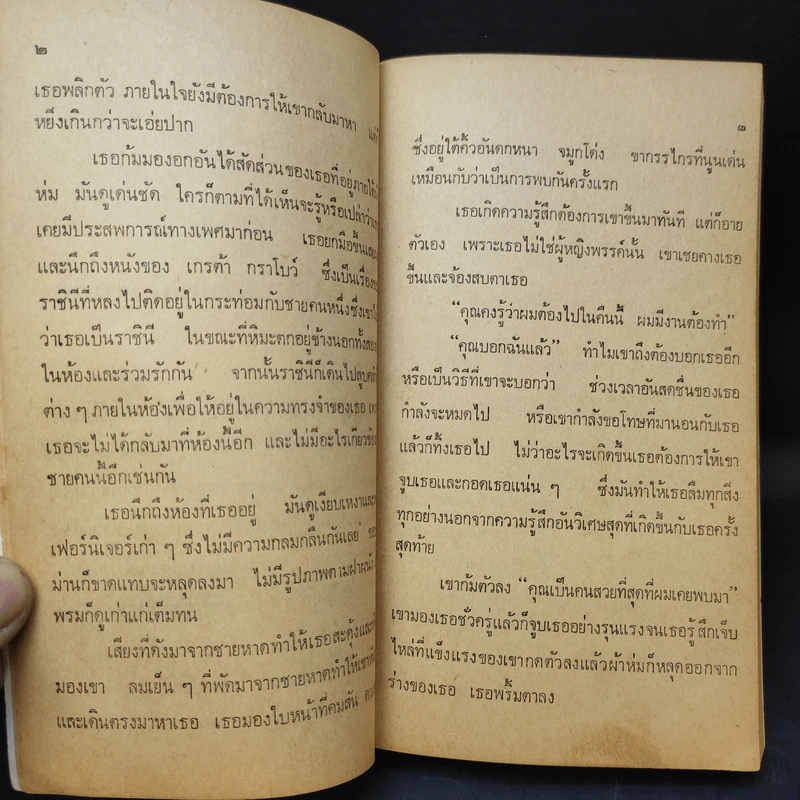 ๒
เธอพลิกตัว ภายในใจยังมีต้องการให้เขากลับมาหา
หยิ่งเกินกว่าจะเอ่ยปาก
เธอก้มมองอกอันได้สัดส่วนของเธอที่อยู่ภายใต้
ห่ม มันดูเด่นชัด ใครก็ตามที่ได้เห็นจะรู้หรือเปล่าว่า
เคยมีประสพการณ์ทางเพศมาก่อน เธอยกมือขึ้น
และนึกถึงหนังของ เกรต้า กราโบว์ ซึ่งเป็นเรื่อง
ราชินีที่หลงไปติดอยู่ในกระท่อมกับชายคนหนึ่งซึ่งเขา
ว่าเธอเป็นราชินี ในขณะที่หิมะตกอยู่ข้างนอกทั้ง
ในห้องและร่วมรักกัน จากนั้นราชินีก็เดินไปลูบ
ต่าง ๆ ภายในห้องเพื่อให้อยู่ในความทรงจำของเธอ
เธอจะไม่ได้กลับมาที่ห้องนี้อีก และไม่มีอะไรเกี่ยวข้อง
ชายคนนี้อีกเช่นกัน
เธอนึกถึงห้องที่เธออยู่ มันดูเงียบเหงาและ
เฟอร์นิเจอร์เก่า ๆ ซึ่งไม่มีความกลมกลืนกันเลย
ม่านก็ขาดแทบจะหลุดลงมา ไม่มีรูปภาพตามฝาผนัง
พรมก็ดูเก่าแก่เต็มทน
เสียงที่ดังมาจากชายหาดทำให้เธอสะดุ้งและ
มองเขา ลมเย็น ๆ ที่พัดมาจากชายหาดทำให้เขา
และเดินตรงมาหาเธอ เธอมองใบหน้าที่คมสัน
๓
ซึ่งอยู่ใต้คิ้วอันดกหนา จมูกโด่ง ขากรรไกรที่นูนเด่น
เหมือนกับว่าเป็นการพบกันครั้งแรก
เธอเกิดความรู้สึกต้องการเขาขึ้นมาทันที แต่ก็อาย
ตัวเอง เพราะเธอไม่ใช่ผู้หญิงพรรค์นั้น เขาเชยคางเธอ
ขึ้นและจ้องสบตาเธอ
“คุณคงรู้ว่าผมต้องไปในคืนนี้ ผมมีงานต้องทำ”
“คุณบอกฉันแล้ว” ทำไมเขาถึงต้องบอกเธออีก
หรือเป็นวิธีที่เขาจะบอกว่า ช่วงเวลาอันสดชื่นของเธอ
กำลังจะหมดไป หรือเขากำลังขอโทษที่มานอนกับเธอ
แล้วก็ทิ้งเธอไป ไม่ว่าอะไรจะเกิดขึ้นเธอต้องการให้เขา
จูบเธอและกอดเธอแน่น ๆ ซึ่งมันทำให้เธอลืมทุกสิ่ง
ทุกอย่างนอกจากความรู้สึกอันวิเศษสุดที่เกิดขึ้นกับเธอครั้ง
สุดท้าย
เขาก้มตัวลง “คุณเป็นคนสวยที่สุดที่ผมเคยพบมา”
เขามองเธอชั่วครู่แล้วก็จูบเธออย่างรุนแรงจนเธอรู้สึกเจ็บ
ไหล่ที่แข็งแรงของเขากดตัวลงแล้วผ้าห่มก็หลุดออกจาก
ร่างของเธอ เธอพริ้มตาลง